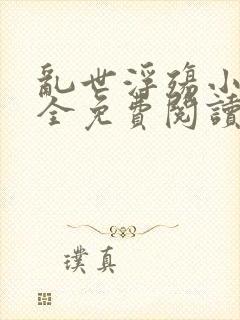 亂世浮殤小
全免費閱讀
璞真